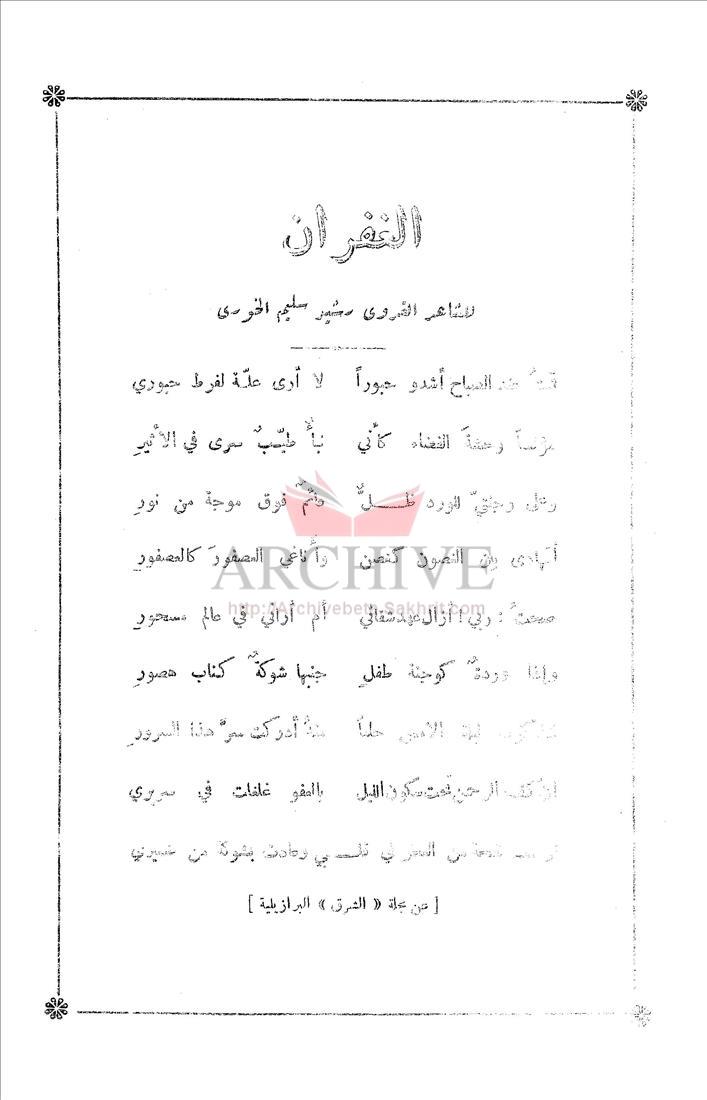 الغفران
للشاعر القروى رشيد سليم الخورى
عند الصباح أشدو حبوراً لا أرى علّة لفرط حبوري
رعشةَ الفضاء كأني نبأٌ طيّبٌ سرى في الأثيرِ
وعلى وجنتيّ للورد ظـــلٌّ وفمٌ فوق موجة من نورِ
أتهادى بين الغصون كغصن وأُناغي العصفورَ كالعصفورِ
صحتُ : ربي ! أزال عهد شقائي أم أراني في عالم مسحورِ
وإذا وردةٌ كوجنة طفلٍ جنبها شوكةٌ كناب هصورِ
ليلة الأمس حلماً منهُ أدركت سرَّ هذا السرورِ
الرحمن تحت سكون الليل بالعفو غلغلت في سريري
من السحر في قلـــبي وعادت بشوكة من ضميري
[ عن مجلة « الشرق » البرازيلية ]
ARCHIVE
http://Archivebeta.Sakhrit.com